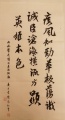 疾風知勁草板蕩識
誠臣滄海橫流方顯
英雄本色